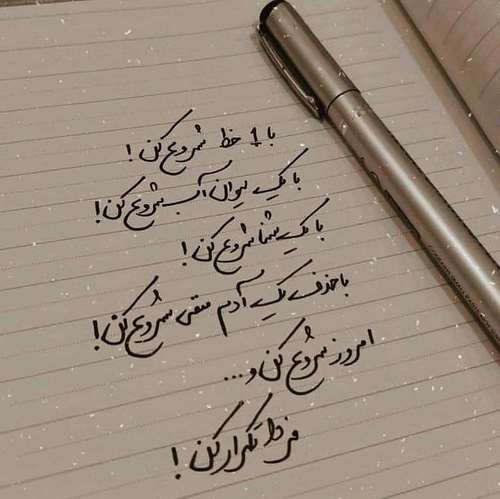 با 1 خط شروع کن !
با یک لیوان آب شروع کن !
با یک شنا شروع کن !
با حذف یک آدم منفی شروع کن !
امروز شروع کن و ...
فردا تکرار کن !